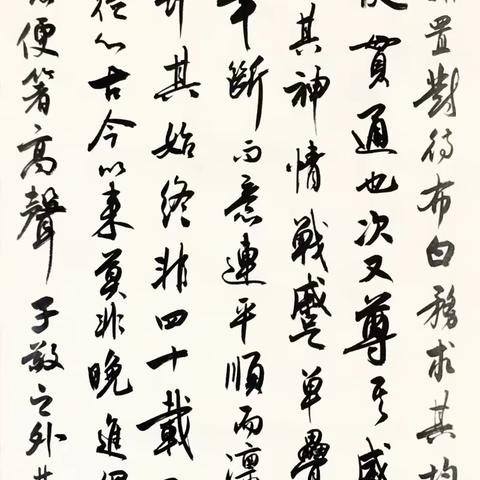 置對待布白務求其均
使貫通也次又尊其威
其神情戰蹙單疊
斷而意連平順而凜
其始終非四十載
心古今以來莫非晚進
便箸高聲子敬之外